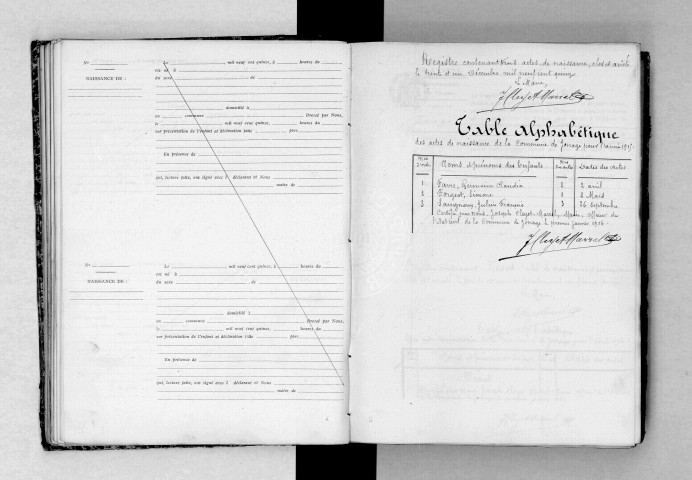 N°
NAISSANCE DE :
Le mil neuf cent quinze, à heures du
est né à
du sexe de
domicilié à
commune Dressé par Nous,
le mil neuf cent quinze, à heures du
sur présentation de l'Enfant et déclaration faite par
En présence de
qui, lecture faite, ont signé avec l déclarant et Nous
maire de
N°
NAISSANCE DE :
Le mil neuf cent quinze, à heures du
est né à
du sexe de
domicilié à
commune Dressé par Nous,
le mil neuf cent quinze, à heures du
sur présentation de l'Enfant et déclaration faite par
En présence de
qui, lecture faite, ont signé avec l déclarant et Nous
maire de
Registre contenant trois actes de naissance, clos et arrêté
le trente et un Décembre mil neuf cent quinze
Le Maire,
Table Alphabétique
des actes de naissance de la Commune de Jonage pour l'année 1915.
Noms & prénoms des Enfants Dates des Actes
1 Favre, Germaine Claudia 2 2 avril
2 Forgest, Simone 1 2 Mars
3 Julien François 3 26 Septembre
Certifié par Nous, Joseph Maire, Officier de
l'Etat civil de la Commune de Jonage le premier janvier 1916.